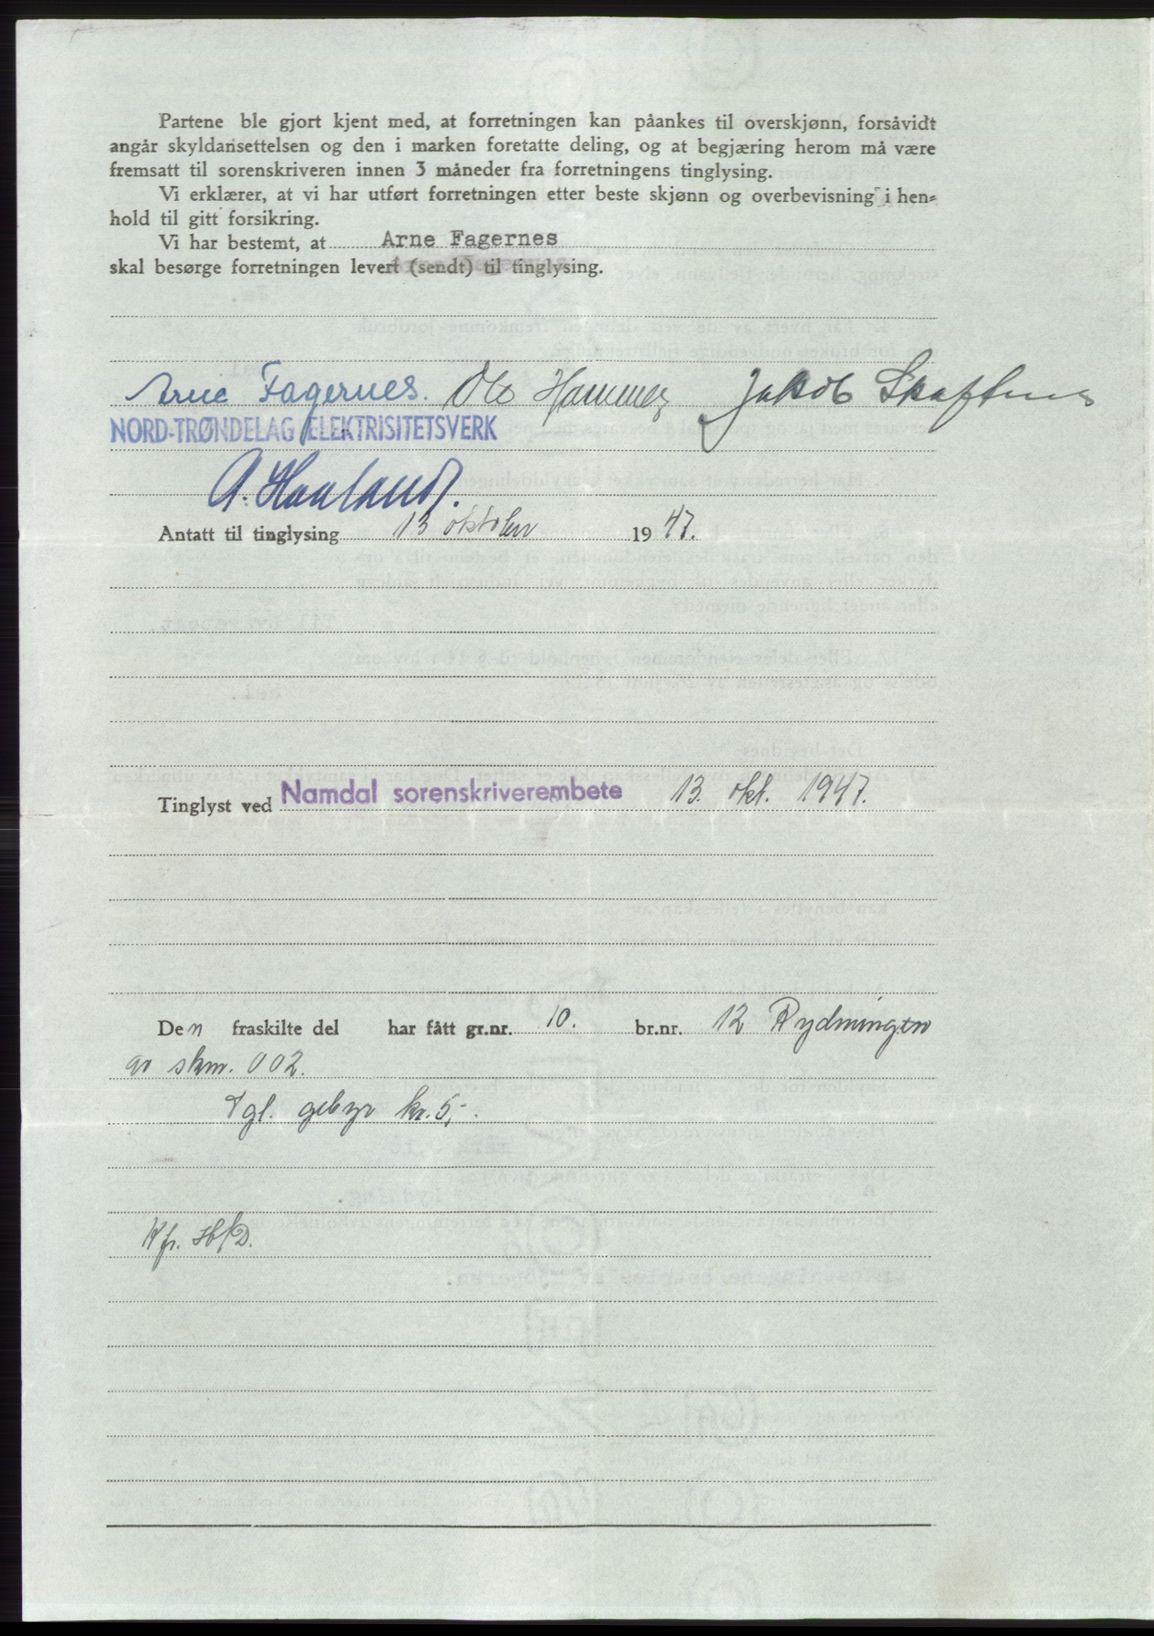 Partene ble gjort kjent med, at forretningen kan påankes til overskjønn, forsåvidt
angår skyldansettelsen og den i marken foretatte deling, og at begjæring herom må være
fremsatt til sorenskriveren innen 3 måneder fra forretningens tinglysing.
Vi erklærer, at vi har utført forretningen etter beste skjønn og overbevisning i hen-
hold til gitt forsikring.
Vi har bestemt, at Arne Fagernes
skal besørge forretningen levert (sendt) til tinglysing.
Arne Fagernes. Ole Hammer Jakob Skaftnes
NORD-TRØNDELAG ELEKTRISITETSVERK
A. Haaland.
Antatt til tinglysing 13 oktober 1947.
Tinglyst ved Namdal sorenskriverembete 13. okt. 1947.
Den fraskilte del har fått gr.nr. 10. br.nr. 12 Rydningen
av skm. 002.
Tgl. gebyr kr. 5,-.